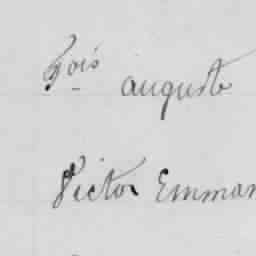 Fois auguste
Victor Emman